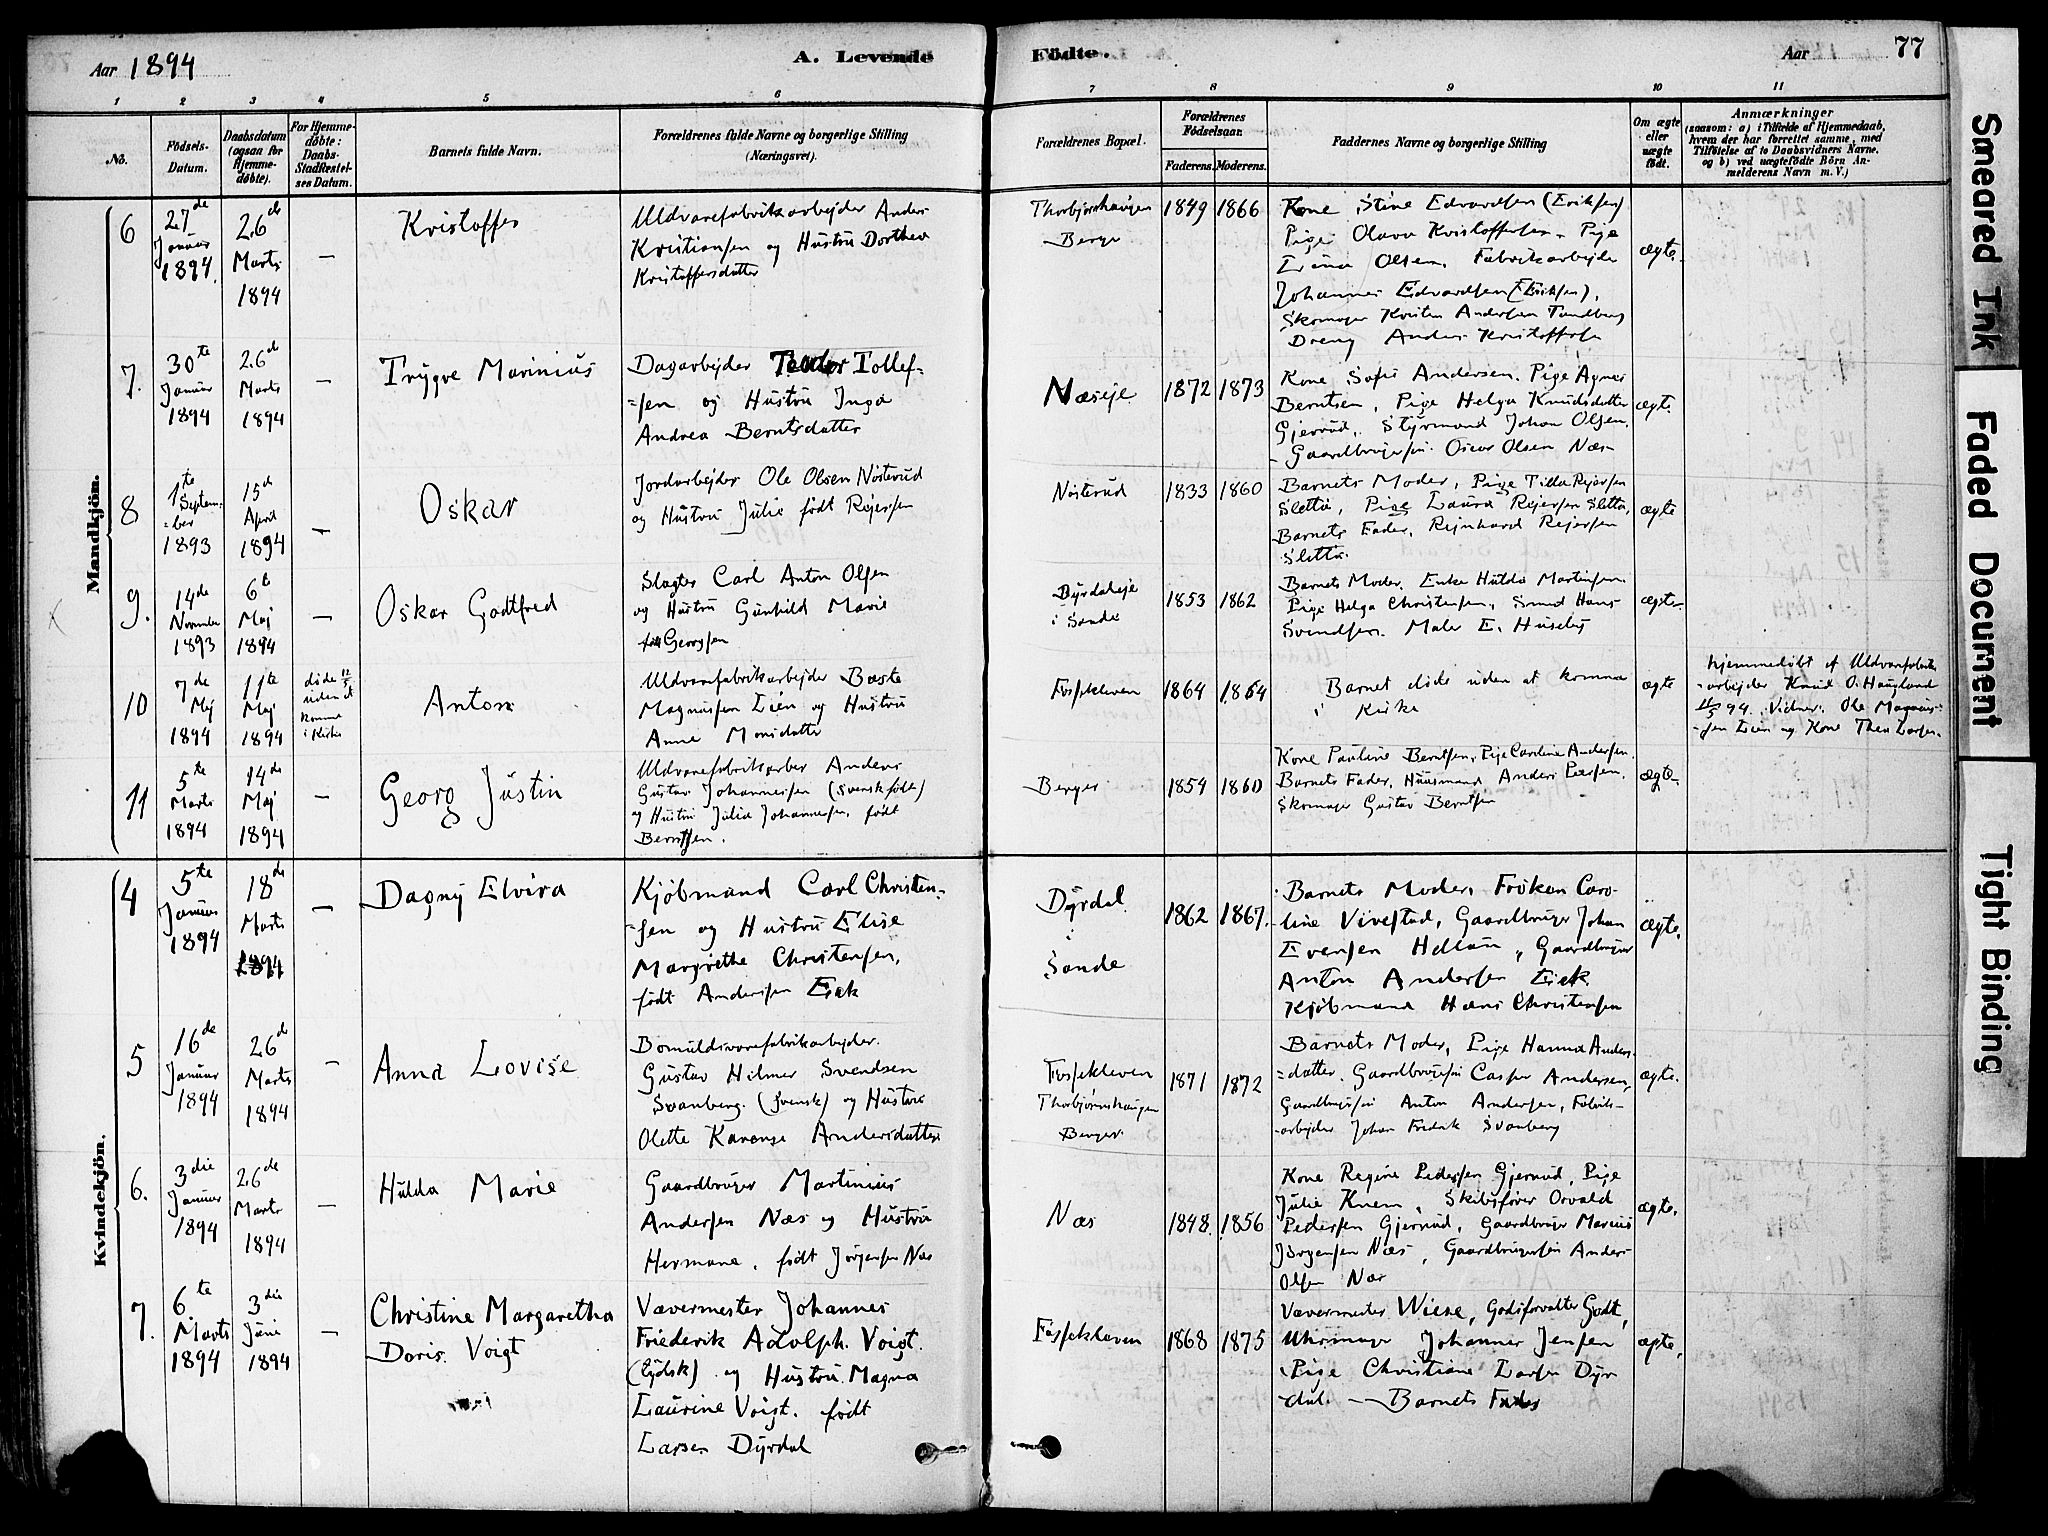 Aar 1894
A. Levende
Födte.
Aar
77
1
2
3
4
5
6
7
8
9
10
11
No.
Födsels-
Datum.
Daabsdatum
(ogsaa for
Hjemme-
döbte).
For Hjemme-
döbte:
Daabs-
Stadfæstel-
ses Datum.
Barnets fulde Navn.
Forældrenes fulde Navne og borgerlige Stilling
(Næringsvei).
Forældrenes Bopæl.
Forældrenes
Födselsaar.
Faderens.
Moderens.
Faddernes Navne og borgerlige Stilling
Om ægte
eller
uægte
födt.
Anmærkninger
(saasom: a) i Tilfælde af Hjemmedaab,
hvem der har forrettet samme, med
Tilföielse af to Daabsvidners Navne,
og b) ved uægtefödte Börn An-
melderens Navn m. V.)
Mandkjön.
6
27de
Januar
1894.
26de
Marts
1894
—
Kristoffer
Uldvarefabrikarbejder Anders
Kristiansen og Hustru Dorthea
Kristoffersdatter
Thorbjørnshaugen
Berger
1849
1866
Kone Stine Edvardsen (Eriksen)
Pige Olava Kristoffersen, Pige
Olsen, Fabrikarbejder
Johannes Edvardsen (Eriksen),
Skomager Kristen Andersen Tandberg
Dreng Anders Kristoffersen
ægte.
7.
30te
Januar
1894
26de
Marts
1894
—
Trygve Marinius
Dagarbejder Teodor Tollef-
=sen og Hustru Inga
Andrea Berntsdatter
Næseje
1872
1873
Kone Sofie Andersen. Pige Agnes
Berntsen, Pige Helga Knudsdatter
Gjerrud, Styrmand Johan Olsen,
Gaardbrugersøn Oscar Olsen Næs
ægte
8
1te
Septem-
=ber
1893
15de
April
1894
—
Oskar
Jordarbejder Ole Olsen Nösterud
og Hustru Julie født Rejersen
Nösterud
1833
1860
Barnets Moder, Pige Tilla Rejersen
Sletta, Pige Laura Rejersen Sletta,
Barnets Fader, Rejnhard Rejersen
Sletta.
ægte
9.
14de
November
1893
6te
Maj
1894
—
Oskar Godtfred
Slagter Carl Anton Olsen
og Hustru Gunhild Marie
født Georgsen
Dyrdaleje
i Sande
1853
1862
Barnets Moder. Enke Hulda Martinsen
Pige Helga Christensen, Smed Hans
Svendsen. Maler E. Huseby
ægte
10
7de
Maj
1894
11te
Maj
1894
døde 12/5
uden at
komme
i Kirke
Anton
Uldvarefabrikarbejder Bæste
Magnussen Lien og Hustru
Anne Monsdatter
Fossekleven
1864
1864
Barnet døde uden at komme
i Kirke
ægte
hjemmedøbt af Uldvarefabrik-
-arbejder Knud O. Haugland
11/5 94. Vidner. Ole Magnus-
-sen Lien og Kone Thea Larsen.
11
5te
Marts
1894
14de
Maj
1894
—
Georg Justin
Uldvarefabrikarber Anders
Gustav Johannessen (svenskfødt)
og Hustru Julia Johannesen, født
Berntsen.
Berger
1854
1860
Kone Pauline Berntsen, Pige Caroline Andersen.
Barnets Fader, Huusmand Anders Pedersen,
Skomager Gustav Berntsen
ægte
Kvindekjön.
4
5te
Januar
1894
18de
Marts
1894
—
Dagny Elvira
Kjöbmand Carl Christen-
=sen og Hustru Elise
Margrethe Christensen,
født Andersen Eek
Dyrdal
i
Sande
1862
1867.
Barnets Moder, Fröken Caro-
line Vivestad, Gaardbruger Johan
Evensen Helland, Gaardbruger
Anton Andersen Eek.
Kjöbmand Hans Christensen
ægte.
5
16de
Januar
1894
26de
Marts
1894
—
Anna Lovise
Bomuldsvarefabrikarbejder
Gustav Hilmer Svendsen
Svanberg. (svensk) og Hustru
Olette Karense Andersdatter
Fossekleven
Thorbjørnshaugen
Berger
1871
1872
Barnets Moder, Pige Hanna Anders-
=datter. Gaardbrugersøn Casper Andersen,
Gaardbrugersøn Anton Andersen, Fabrik-
-arbejder Johan Fredrik Svanberg
ægte.
6.
3die
Januar
1894
26de
Marts
1894
—
Hulda Marie
Gaardbruger Martinius
Andersen Næs og Hustru
Hermane, født Jörgensen Næs
Næs
1848.
1856
Kone Regine Pedersen Gjerrud, Pige
Julie Knem, Skibsfører Osvald
Pedersen Gjerrud, Gaardbruger Marius
Jörgensen Næs, Gaardbrugersøn Anders
Olsen Næs
ægte.
7.
6te
Marts
1894
3die
Juni
1894
—
Christine Margaretha
Doris Voigt
Vævermester Johannes
Friederik Adolph. Voigt.
(tydsk) og Hustru Magna
Laurine Voigt. født
Larsen Dyrdal
Fossekleven
1868
1875
Vævermester Wiese, Godsforvalter Godt,
Uhrmager Johannes Jensen
Pige Christiane Larsen Dyr-
dal. — Barnets Fader
ægte.
Smeared Ink
Faded Document
Tight Binding